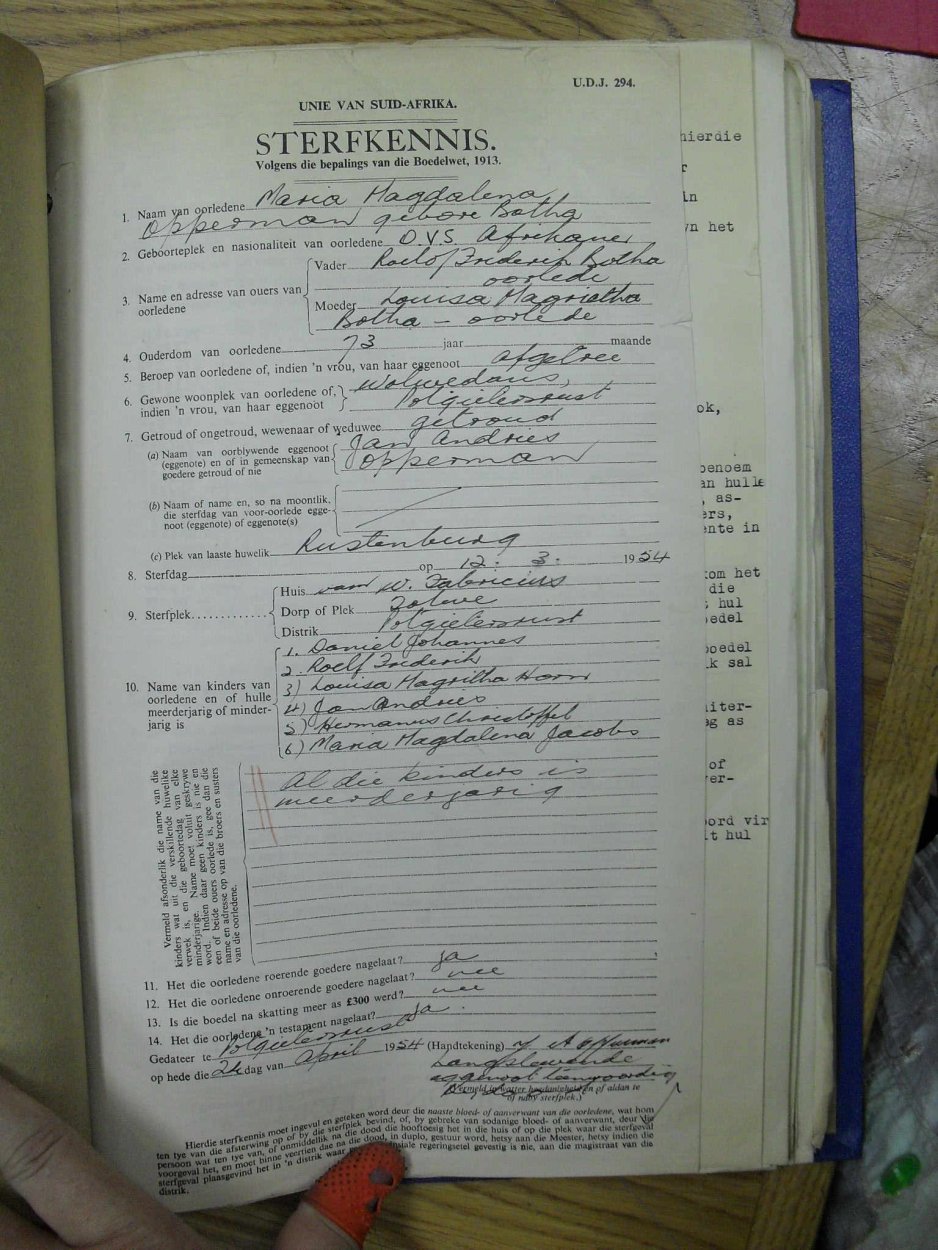 U.D.J. 294.
UNIE VAN SUID-AFRIKA.
STERFKENNIS.
Volgens die bepalings van die Boedelwet, 1913.
1. Naam van oorledene Maria Magdalena
Opperman gebore Botha
2. Geboorteplek en nasionaliteit van oorledene O.V.S. Afrikaner
3. Name en adresse van ouers van oorledene
Vader Roelof Frederik Botha
oorlede
Moeder Louisa Magrietha
Botha – oorlede
4. Ouderdom van oorledene 73 jaar maande
5. Beroep van oorledene of, indien 'n vrou, van haar eggenoot afgetree
6. Gewone woonplek van oorledene of, Wolwedans,
indien 'n vrou, van haar eggenoot Potgietersrust
7. Getroud of ongetroud, wewenaar of weduwee getroud
(a) Naam van oorblywende eggenoot Jan Andries
(eggenote) en of in gemeenskap van Opperman
goedere getroud of nie
(b) Naam of name en, so na moontlik,
die sterfdag van voor-oorlede egge-
noot (eggenote) of eggenote(s)
(c) Plek van laaste huwelik Rustenburg
8. Sterfdag op 12. 3. 1954
9. Sterfplek
Huis van W. Fabricius
Dorp of Plek
Distrik Potgietersrust
10. Name van kinders van
oorledene en of hulle
meerderjarig of minder-
jarig is
1. Daniel Johannes
2. Roelf Frederik
3) Louisa Magritha Horn
4) Jan Andries
5) Hermanus Christoffel
6) Maria Magdalena Jacobs
Al die kinders is
meerderjarig
Vermeld afsonderlik die name van die
kinders wat uit die verskillende huwelike
verwek is, en die geboortedag van elke
minderjarige. Name moet voluit geskrywe
word. Indien daar geen kinders is nie en
een of beide ouers oorlede is, gee dan die
name en adresse op van die broers en susters
van die oorledene.
11. Het die oorledene roerende goedere nagelaat? ja
12. Het die oorledene onroerende goedere nagelaat? nee
13. Is die boedel na skatting meer as £300 werd? nee
14. Het die oorledene 'n testament nagelaat? Ja.
Gedateer te Potgietersrust
op hede die 24 dag van April 1954 (Handtekening)
Langslewende
eggenoot teenwoordig
(Vermeld in watter hoedanigheid en of aldan te
of naby sterfplek.)
Hierdie sterfkennis moet ingevul en geteken word deur die naaste bloed- of aanverwant van die oorledene, wat hom
ten tye van die afsterwing op of by die sterfplek bevind, of, by gebreke van sodanige bloed- of aanverwant, deur die
persoon wat ten tye van, of onmiddellik na die dood die hooftoesig het in die huis of op die plek waar die sterfgeval
voorgeval het, en moet binne veertien dae na die dood, in duplo, gestuur word, hetsy aan die Meester, hetsy indien die
sterfgeval plaasgevind het in 'n distrik waar regeringsetel gevestig is nie, aan die magistraat van die
distrik.
hierdie
r
in
yn het
ok,
benoem
an hulle
, as-
ers,
ente in
om het
die
hul
edel
boedel
k sal
iter-
g as
of
er-
oord vir
it hul